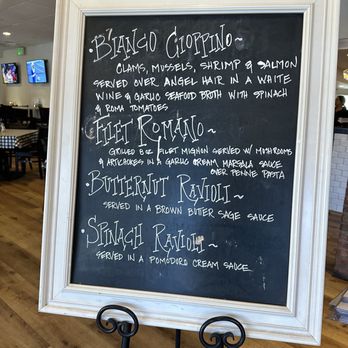 · Bianco Cioppino ~
CLAMS, MUSSELS, SHRIMP & SALMON
SERVED OVER ANGEL HAIR IN A WHITE
WINE & GARLIC SEAFOOD BROTH WITH SPINACH
& ROMA TOMATOES
· Filet Romano ~
GRILLED 8 oz FILET MIGNON SERVED W/ MUSHROOMS
& ARTICHOKES IN A GARLIC CREAM MARSALA SAUCE
OVER PENNE PASTA
· Butternut Ravioli ~
SERVED IN A BROWN BUTTER SAGE SAUCE
· Spinach Ravioli ~
SERVED IN A POMODORO CREAM SAUCE